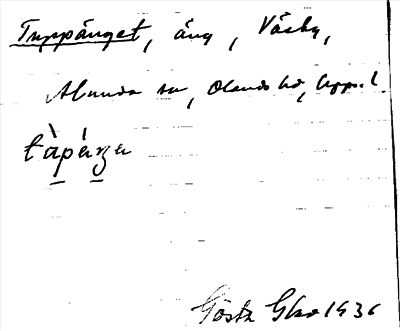 Tuppänget, äng, Väsby,
Alunda sn, Olands hd, Upps. l.
tàpǽŋǝ
Gösta Gbg 1936